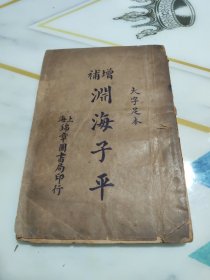 大字足本
增補
淵海子平
上海錦章圖書局印行